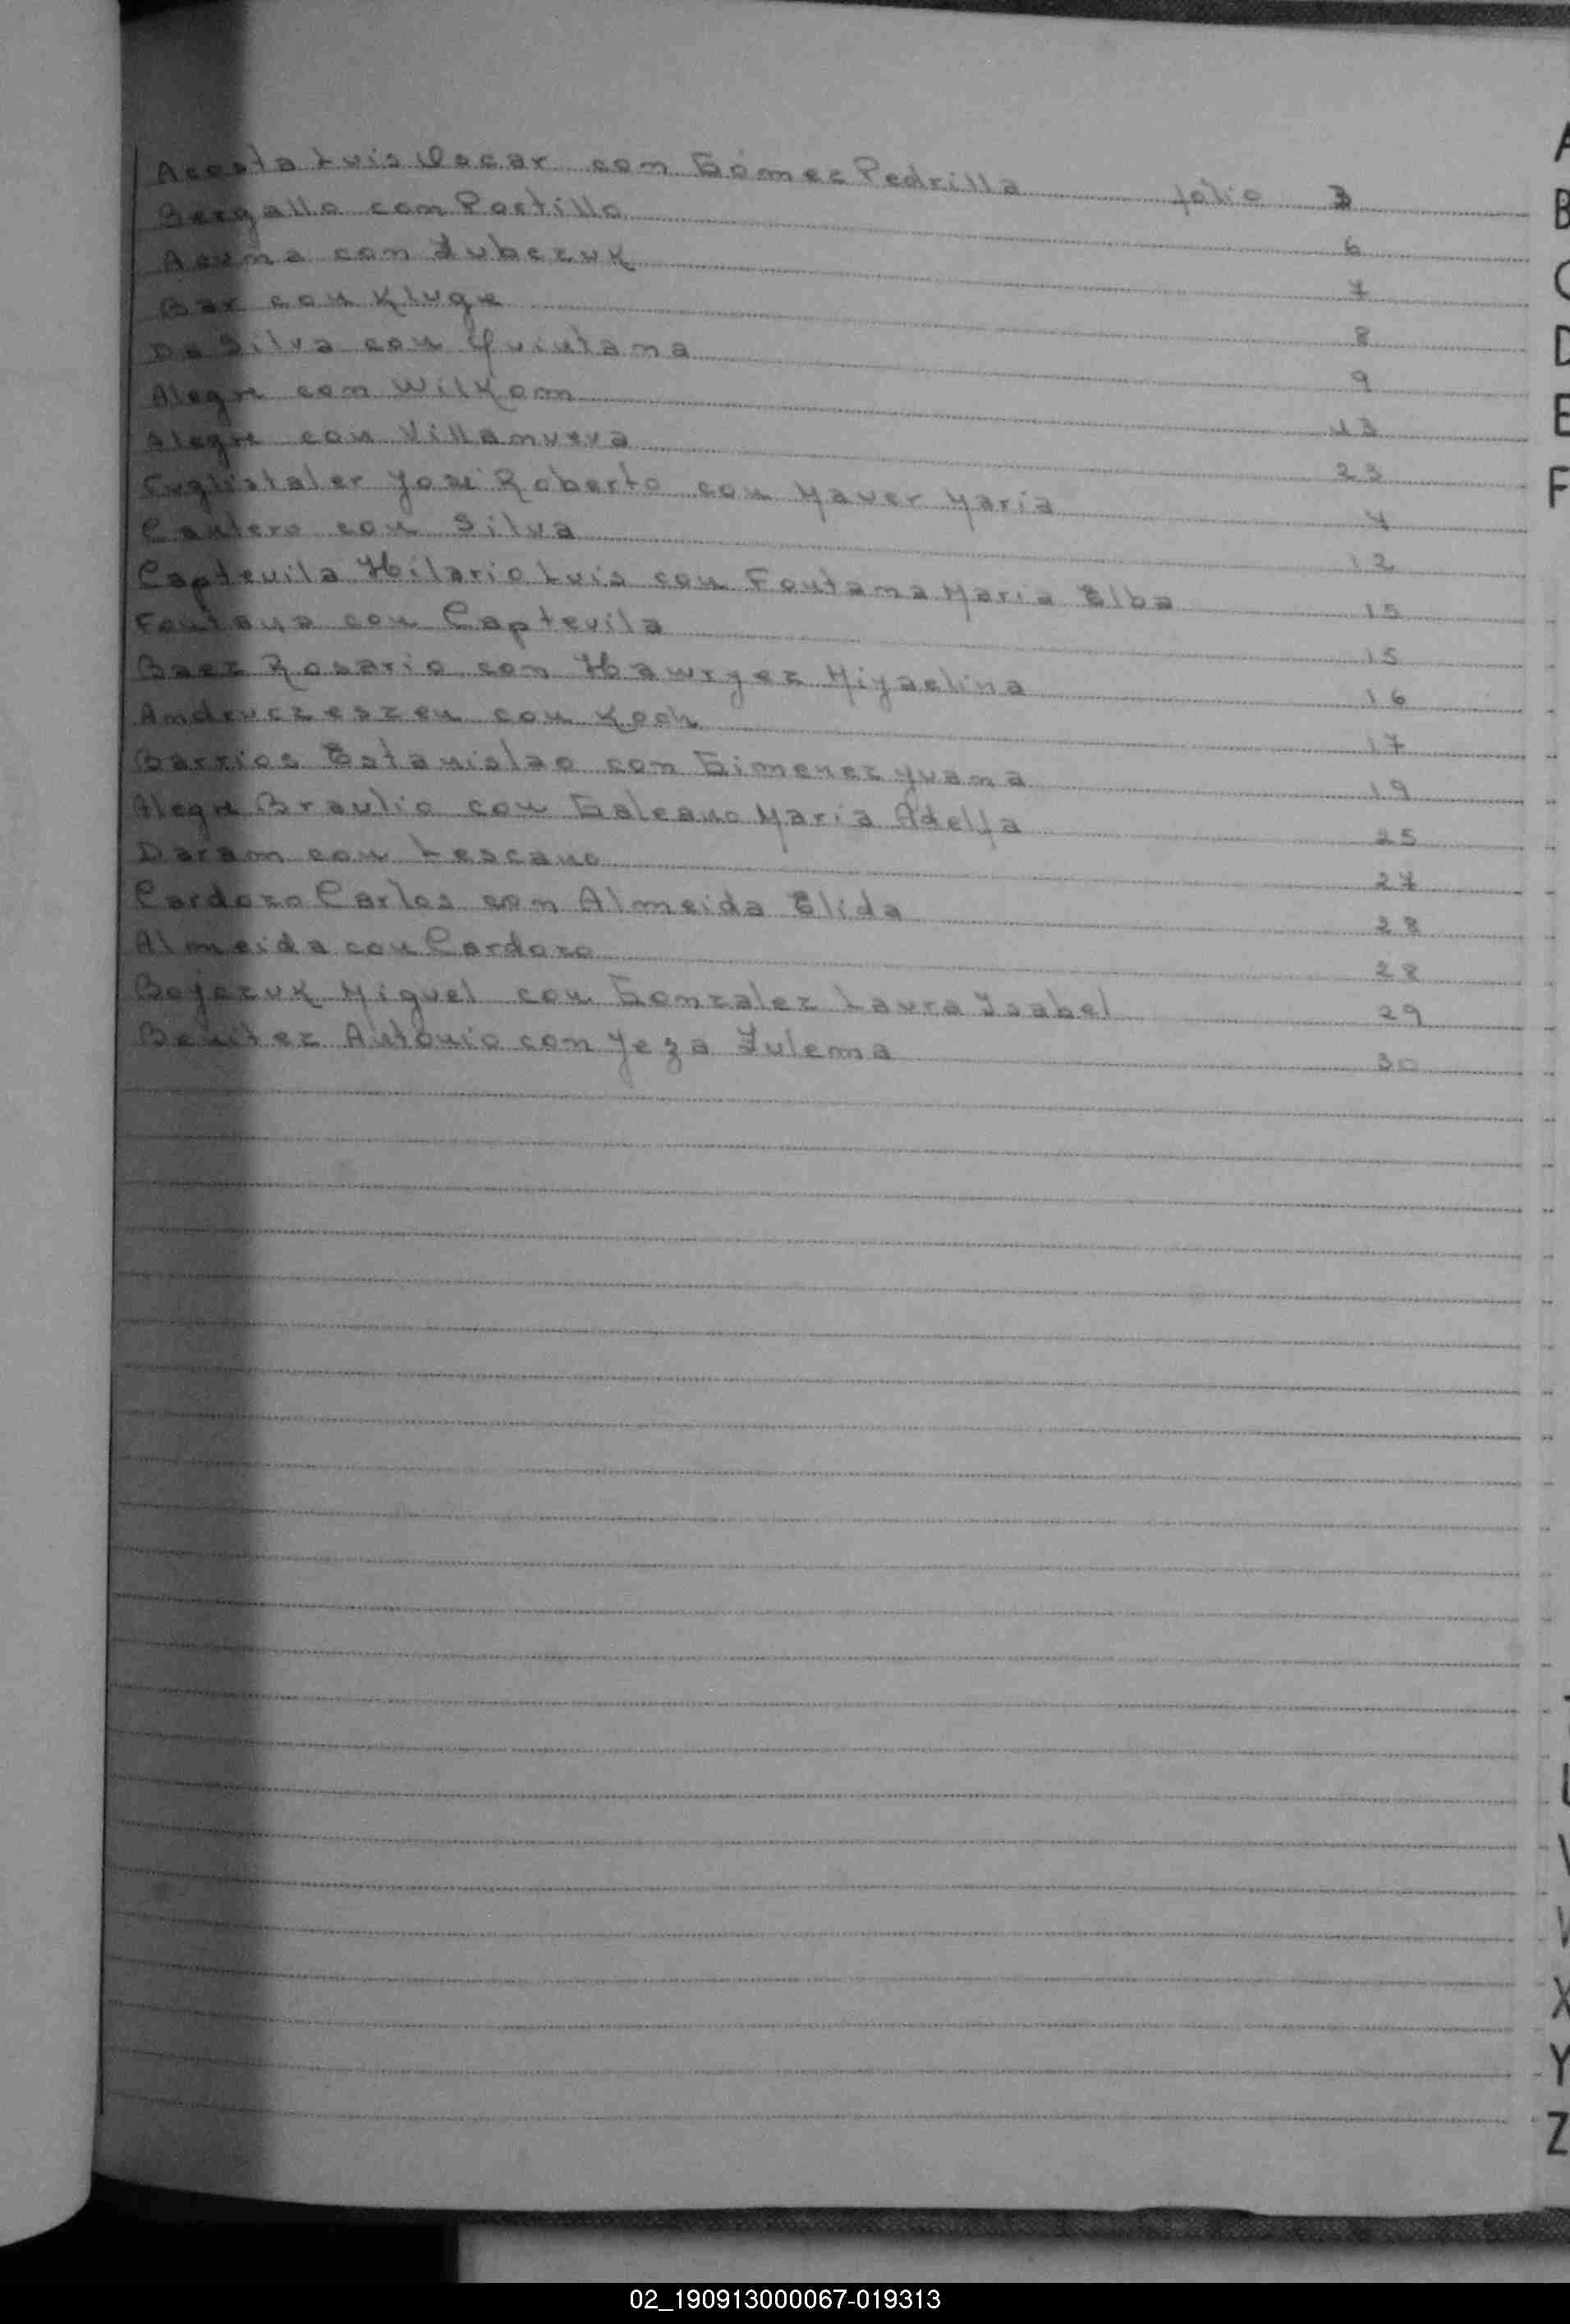 Acosta Luis Oscar con Gómez Pedrilla folio 3
Bergallo con Portillo 6
Acuña con Zubczuk 7
Bar con Kluge 8
Da Silva con Quintana 9
Alegre con Wilkom 13
Alegre con Villanueva 23
José Roberto con Mayer María 4
Cantero con Silva 12
Captevila Hilario Luis con Fontana María Elba 15
Fontana con Captevila 15
Baez Rosario con Hawryez 16
con Koch 17
Barrios Estanislao con Gimenez Juana 19
Alegre Braulio con Galeano María Adelfa 25
Daram con Lescano 27
Cardozo Carlos con Almeida Elida 28
Almeida con Cardozo 28
Bojczuk Miguel con Gonzalez Laura Isabel 29
Benitez Antonio con Jeza Zulema 30
A
B
C
D
E
F
X
Y
Z
02_190913000067-019313